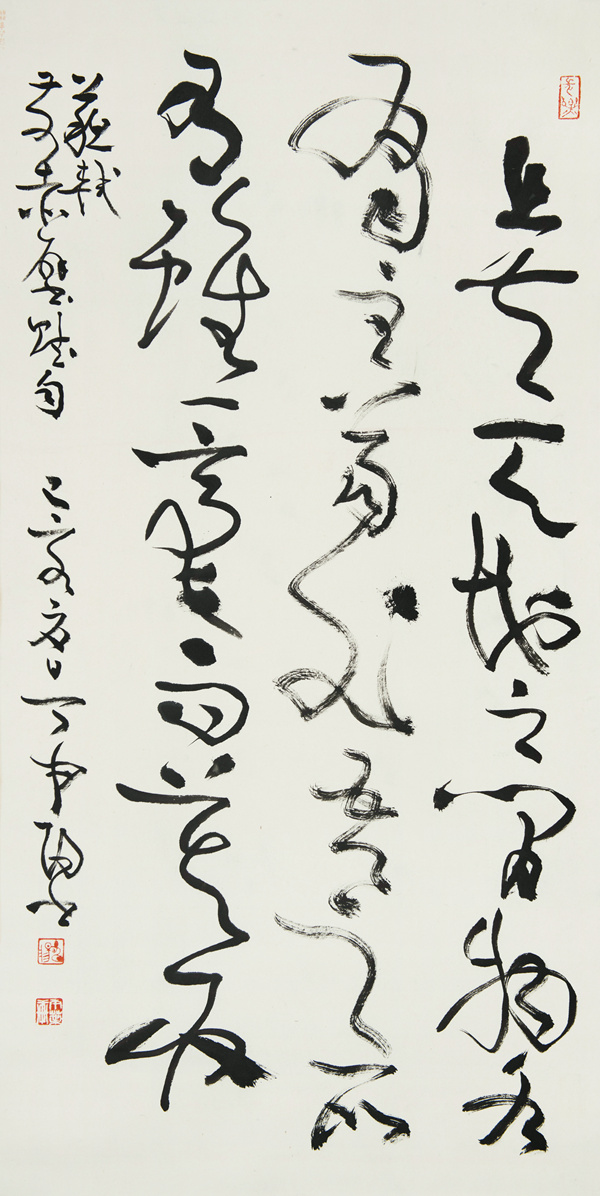 且夫天地之間物各
有主苟非吾之所
有雖一毫而莫取
蘇軾
前赤壁賦句 己亥夏日丁申陽書